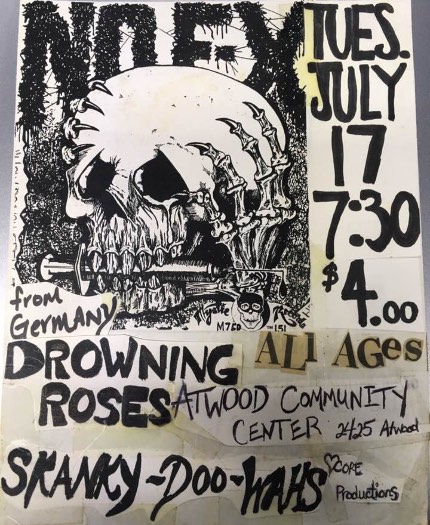 NOFX
TUES.
JULY
17
7:30
$4.00
from
GERMANY
DROWNING
ROSES
ALl AGes
ATWOOD COMMUNITY
CENTER 2425 Atwood
SKANKY-DOO-WAHS
CORE
Productions